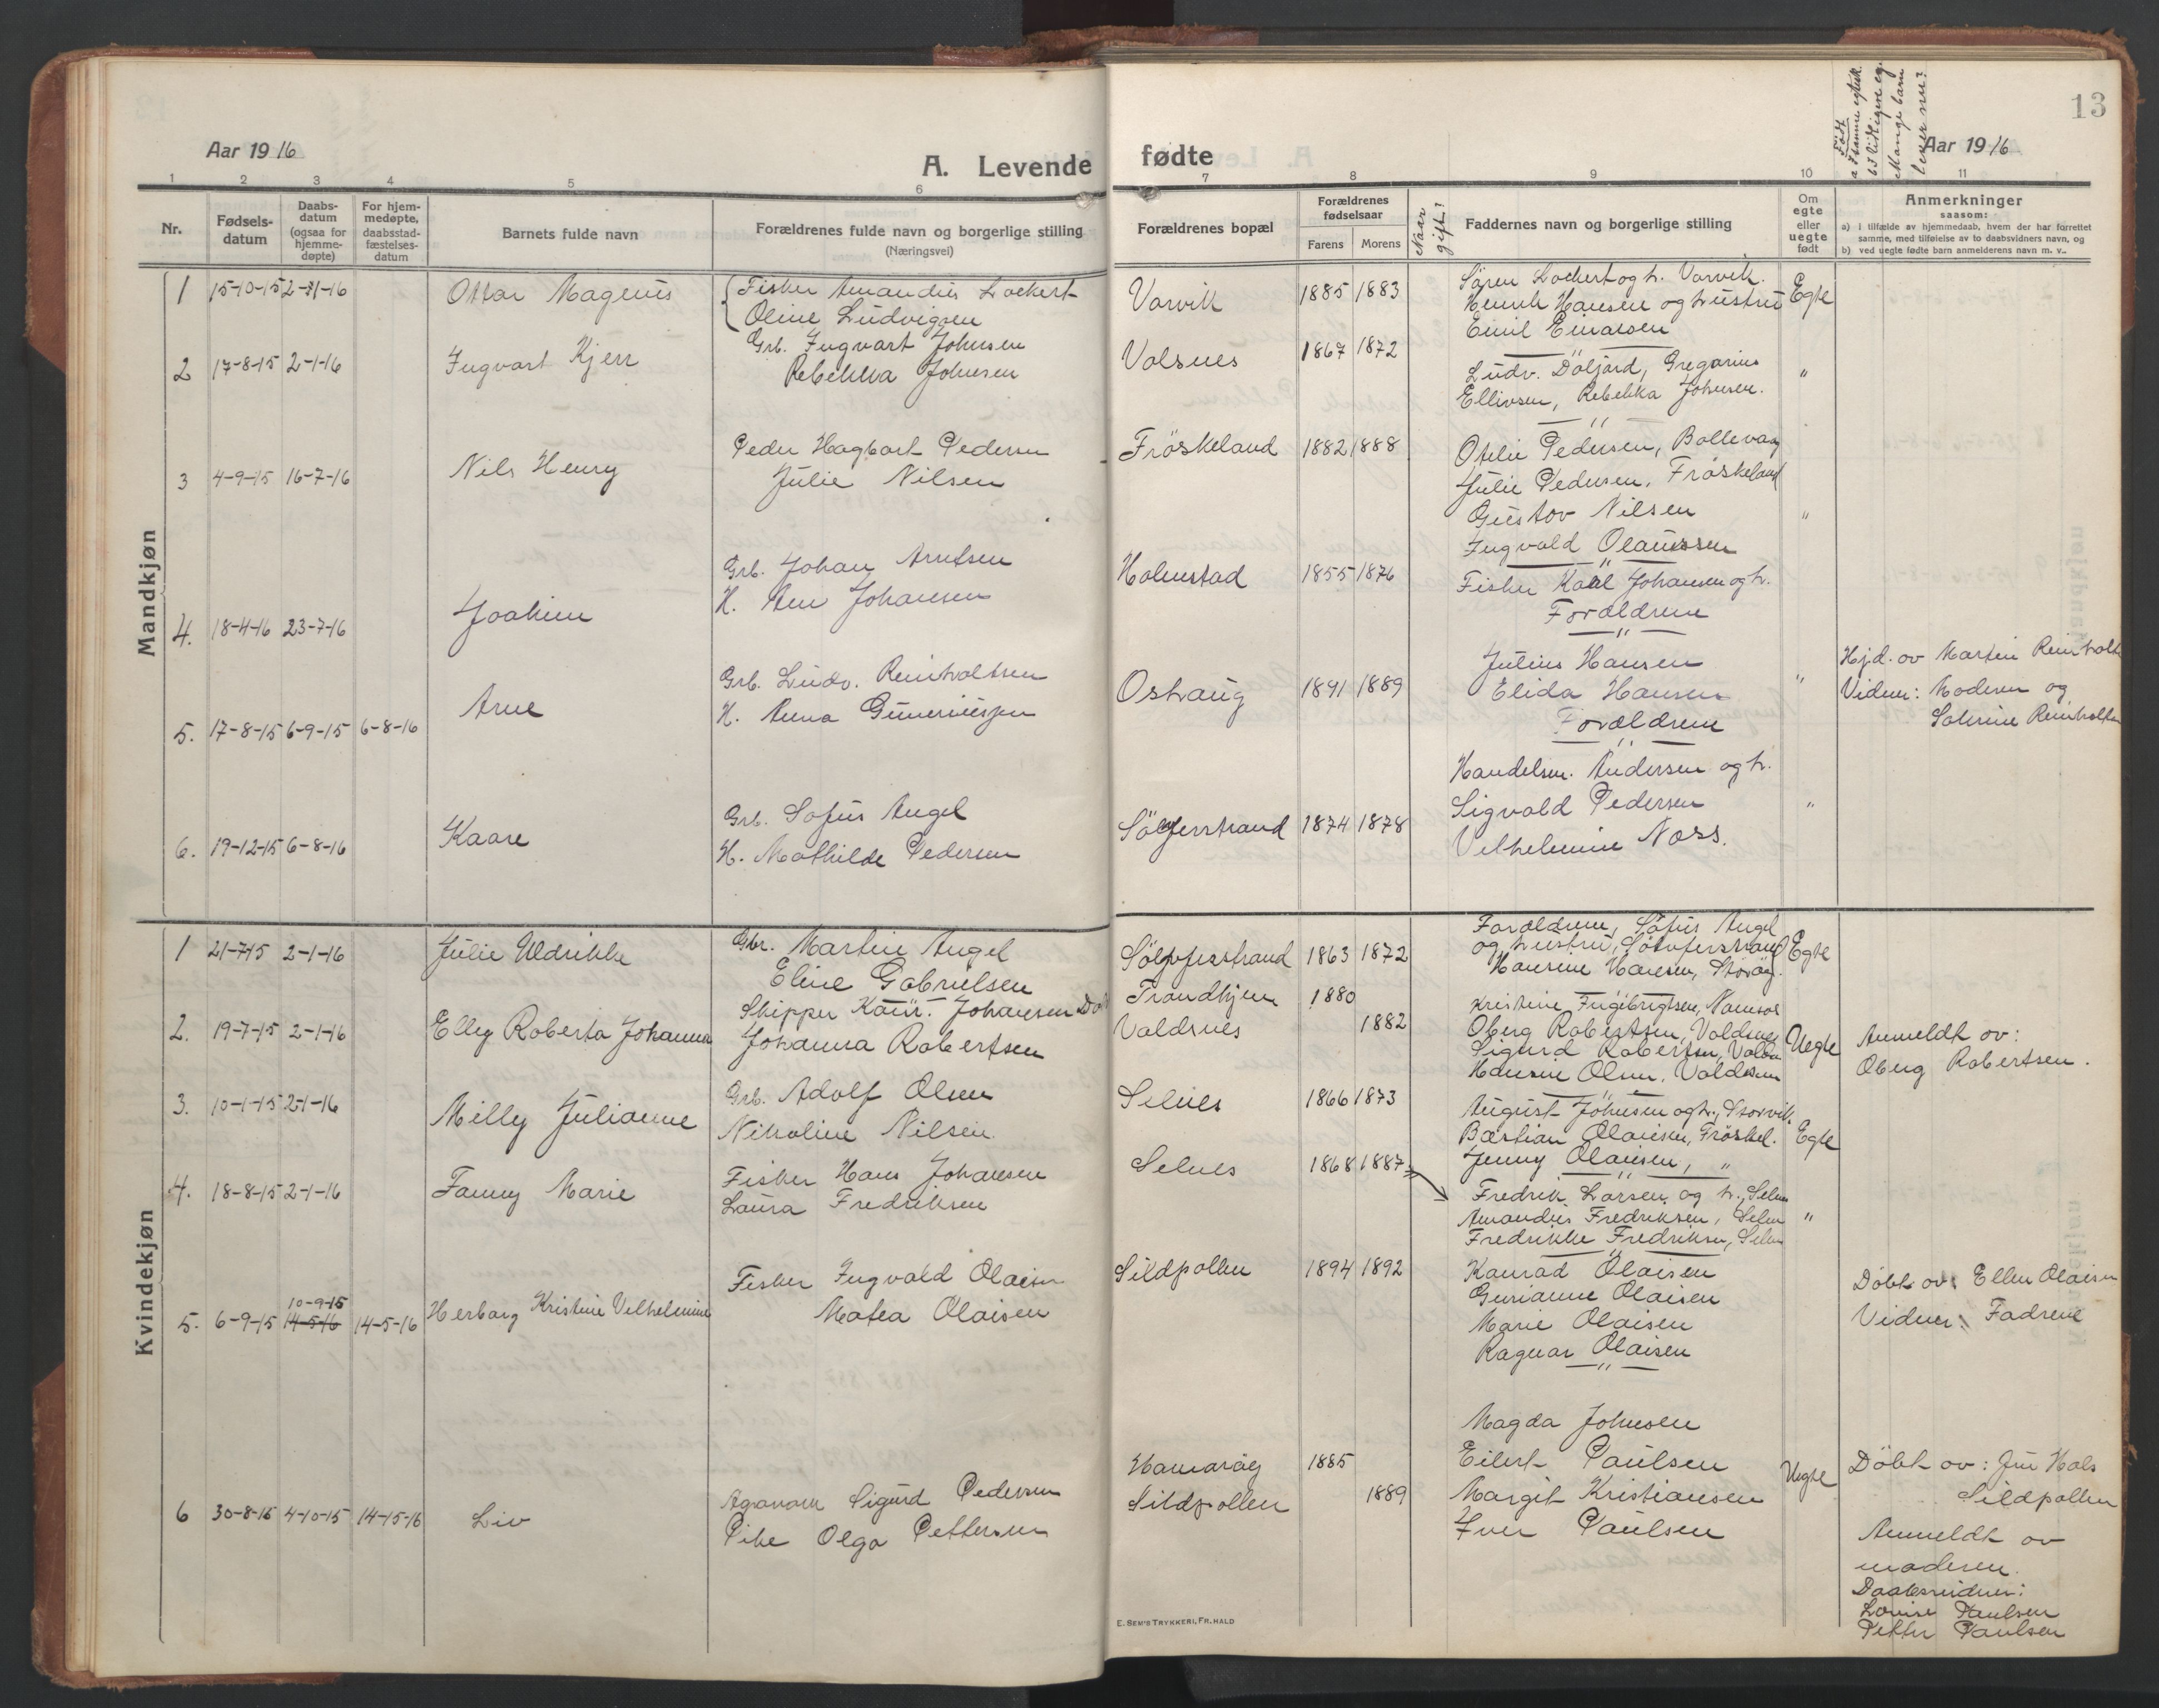 Aar 1916
A. Levende fødte
13
Aar 1916
1 2 3 4 5 6 7 8 9 10 11
Nr.
Fødsels-
datum
Daabs-
datum
(ogsaa for
hjemme-
døpte)
For hjem-
medøpte,
daabsstad-
fæstelses-
datum
Barnets fulde navn
Forældrenes fulde navn og borgerlige stilling
(Næringsvei)
Forældrenes bopæl
Forældrenes
fødselsaar
Farens Morens
Naar
gift?
Faddernes navn og borgerlige stilling
Om
egte
eller
uegte
født
Anmerkninger
saasom:
a) i tilfælde av hjemmedaab, hvem der har forrettet
samme, med tilføielse av to daabsvidners navn, og
b) ved uegte fødte barn anmelderens navn m. v..
Født
Mange barn
lever nu?
Mandkjøn
1 15-10-15 2-1-16 Ottar Magnus
Fisker Amandus Lockert
Oline Ludvigsen
Vorvik 1885 1883
Søren Lockert og h. Vorvik.
Henrik Hansen og hustru
Emil Einarsen
Egte
2 17-8-15 2-1-16 Ingvart Kjerr
Grb. Ingvart Johnsen
Rebekka Johnsen
Valsnes 1867 1872
Ludv. Döljord, Gregorius
Ellivsen, Rebekka Johnsen.
"
3 4-9-15 16-7-16 Nils Henry
Peder Hagbart Pedersen
Julie Nilsen
Fröskeland 1882 1888
Otelie Pedersen, Bollevaag
Julie Pedersen, Fröskeland
Gustav Nilsen
Ingvald Olaussen
"
4. 18-4-16 23-7-16 Joakim
Grb. Johan Arntsen
H. Ane Johansen
Holmstad 1855 1876
Fisker Karl Johansen og h.
Forældrene
5. 17-8-15 6-9-15 6-8-16 Arne
Grb. Ludv. Reinholtsen
H. Anna Guneriussen
Oshaug 1891 1889
Julius Hansen
Elida Hansen
Forældrene
"
Hjd. av Martin Reinholts
Vidner: Moderen og
Reinholtsen
6. 19-12-15 6-8-16 Kaare
Grb. Sofus Angel
H. Mathilde Pedersen
1874 1878
Handelsm. Andersen og h.
Sigvald Pedersen
Vilhelmine Noss.
"
Kvindekjøn
1 21-7-15 2-1-16 Julie Uldrikke
Gbr. Martin Angel
Eline Gabrielsen
1863 1872
Forældrene, Sofus Angel
og hustru,
Hansine Hansen,
Egte
2. 19-7-15 2-1-16 Elly Roberta Johanna
Skipper Johansen
Johanna Robertsen
Trondhjem 1880
Valdsnes 1882
Kristine Ingebrigtsen, Namsos
Oberg Robertsen, Valdsnes
Sigurd Robertsen,
Hansine Olsen,
Uegte
Anmeldt av:
Oberg Robertsen.
3. 10-1-15 2-1-16 Milly Julianne
Grb. Adolf Olsen
Nikoline Nilsen
Selnes 1866 1873
August Johnsen og h.,
Bastian Olaisen, Fröskel.
Jenny Olaisen, "
Egte
4. 18-8-15 2-1-16 Fanny Marie
Fisker Hans Johansen
Laura Fredriksen
Selnes 1868 1887
Fredrik Larsen og h., Selnes
Amandus Fredriksen, Selnes
Fredrikke Fredriksen, Selnes
"
5. 6-9-15 10-9-15 14-5-16 14-5-16 Herborg Kristine Vilhelmine
Fisker Ingvald Olaisen
Matea Olaisen
Sildpollen 1894 1892
Konrad Olaisen
Gurianne Olaisen
Marie Olaisen
Ragnar Olaisen
Döbt av: Ellen Olaisen
Vidner: Fadrene
6 30-8-15 4-10-15 14-15-16 Liv
Agronom Sigurd Pedersen
Pike Olga Pettersen
1885
Sildpollen 1889
Magda Johnsen
Eilert Paulsen
Margit Kristiansen
Iver Paulsen
Uegte
Döbt av: Hals
Sildpollen
Anmeldt av
moderen.
Daabsvidner:
Lovise Paulsen
Petter Paulsen
E. SEM'S TRYKKERI, FR.HALD